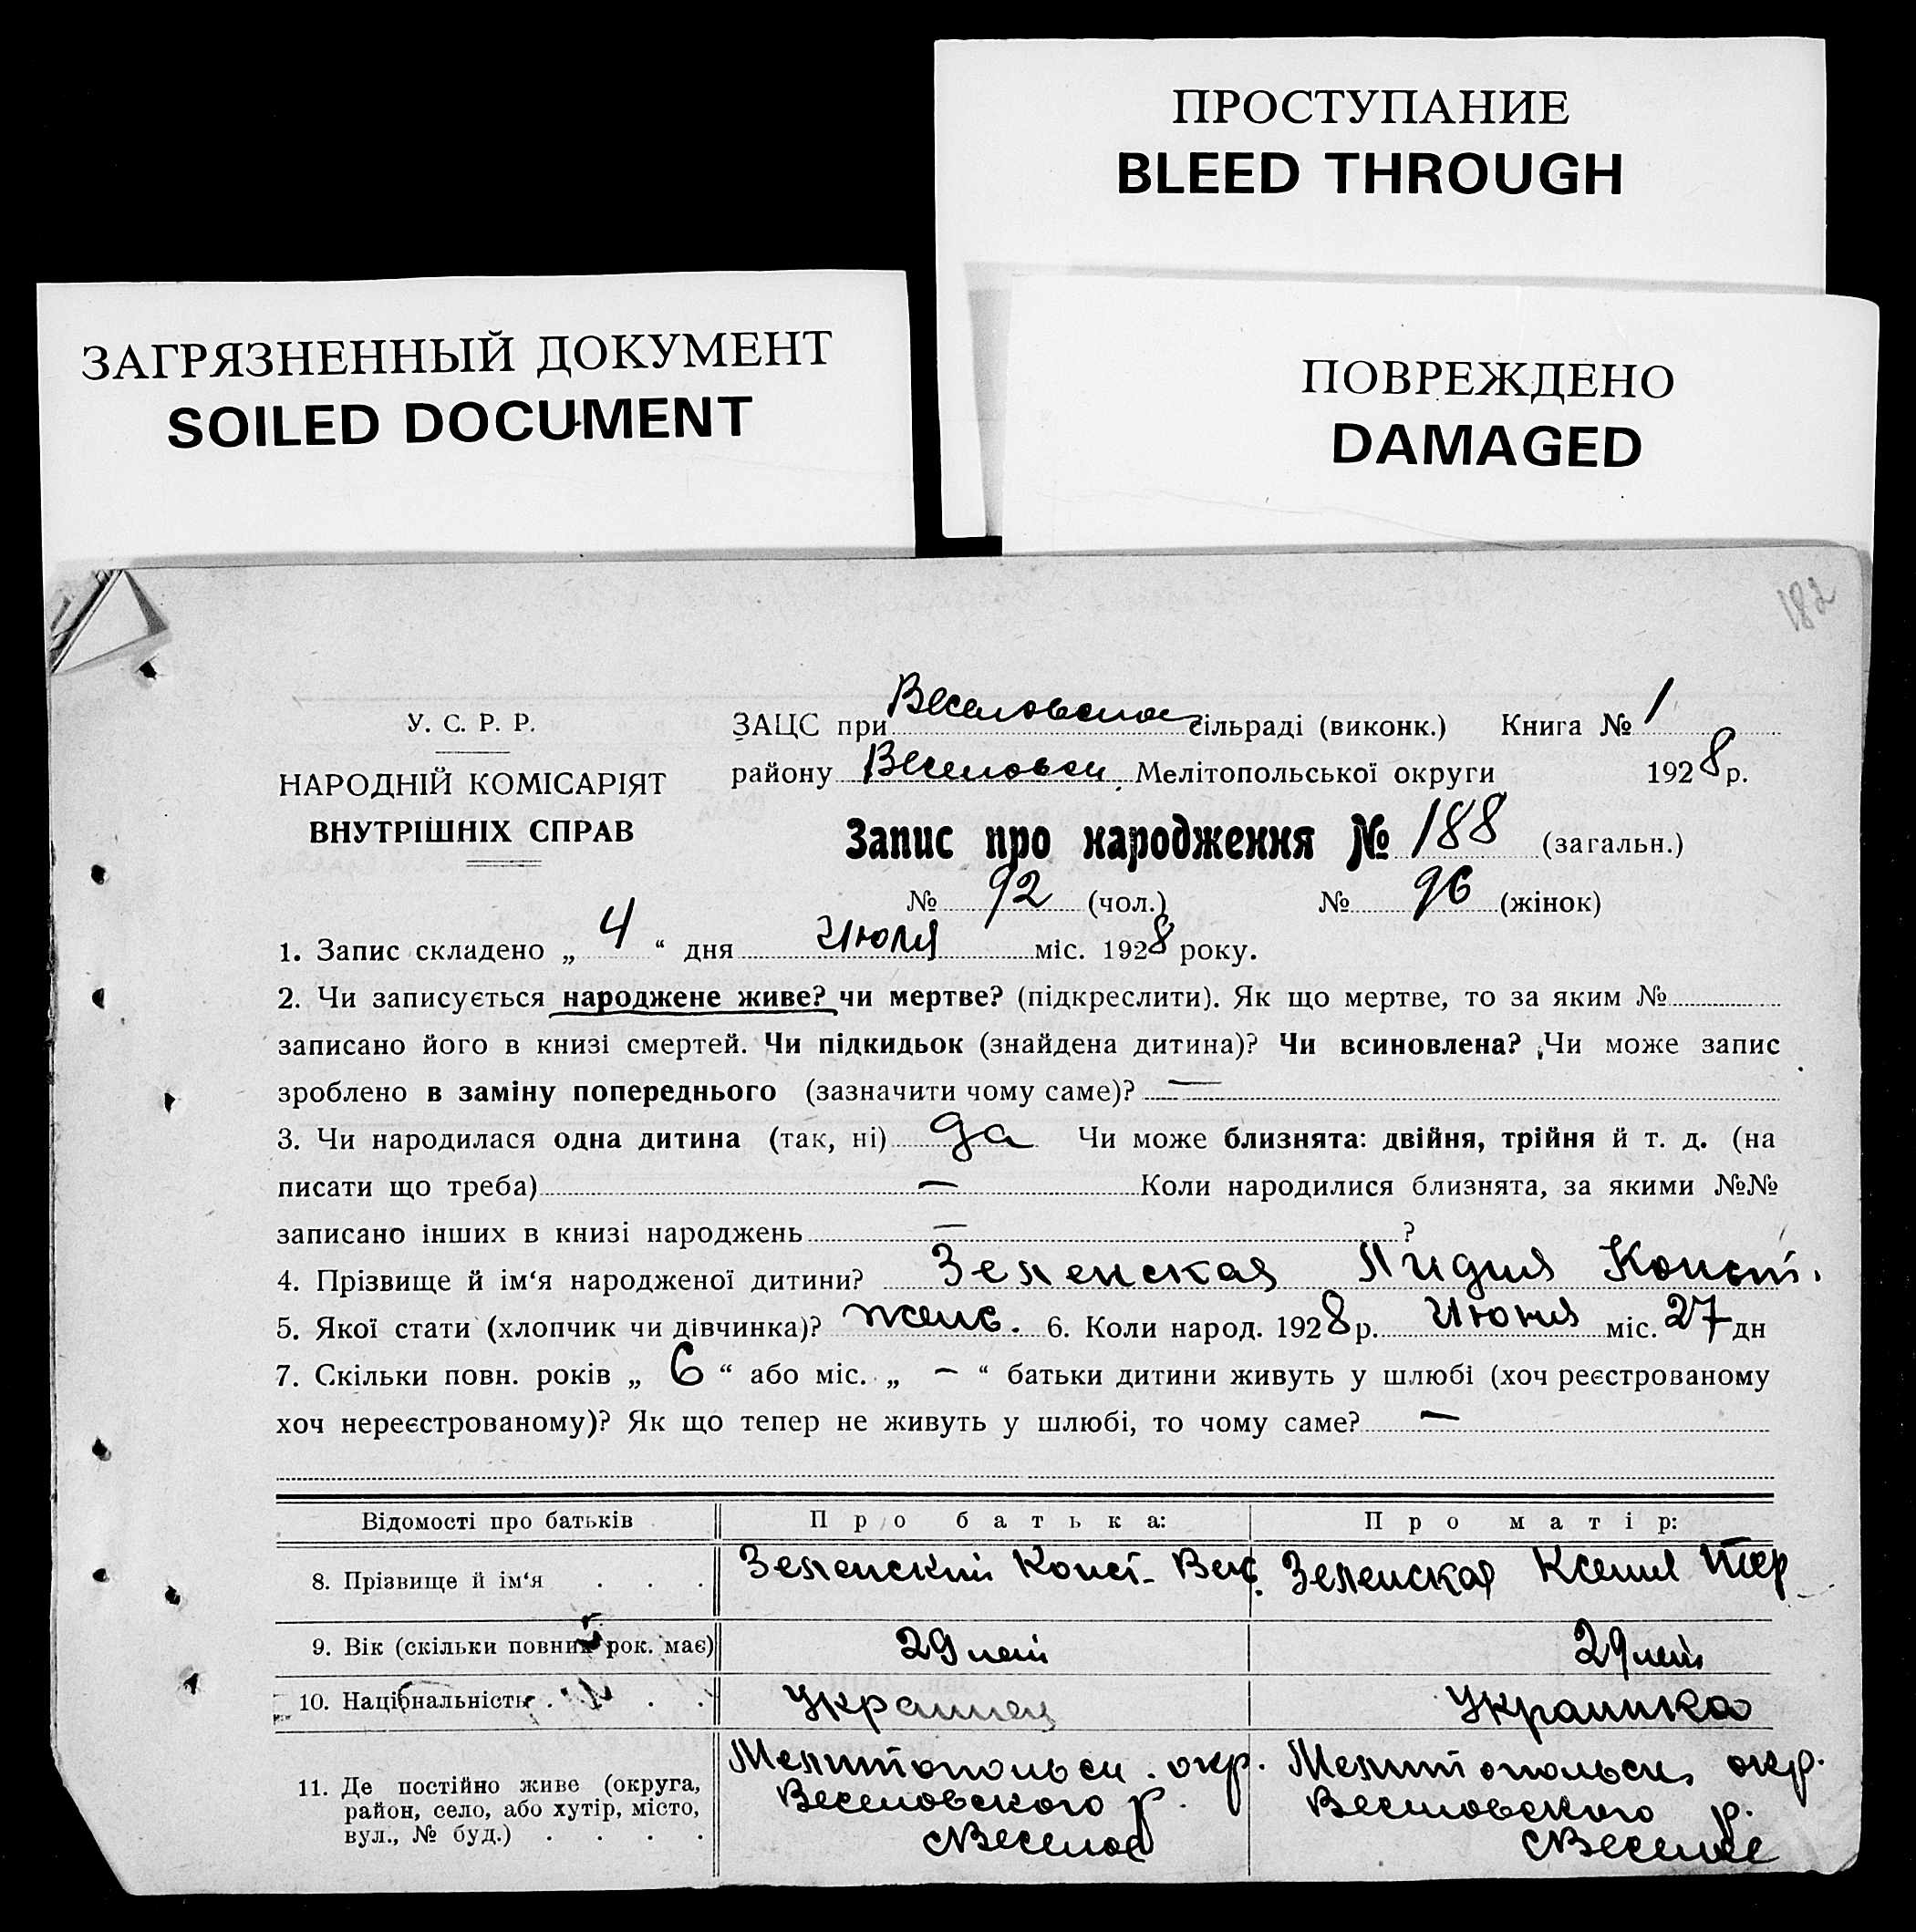 ПРОСТУПАНИЕ
BLEED THROUGH
ЗАГРЯЗНЕННЫЙ ДОКУМЕНТ
SOILED DOCUMENT
ПОВРЕЖДЕНО
DAMAGED
182
У. С. Р. Р.
НАРОДНІЙ КОМІСАРІЯТ
ВНУТРІШНІХ СПРАВ
ЗАЦС при Веселовском сільраді (виконк.) Книга № 1
району Веселовск. Мелітопольської округи 1928 р.
Запис про народження № 188 (загальн.)
№ 92 (чол.) № 96 (жінок)
1. Запис складено „ 4 “ дня Июля міс. 1928 року.
2. Чи записується народжене живе? чи мертве? (підкреслити). Як що мертве, то за яким №
записано його в книзі смертей. Чи підкидьок (знайдена дитина)? Чи всиновлена? Чи може запис
зроблено в заміну попереднього (зазначити чому саме)? —
3. Чи народилася одна дитина (так, ні) да Чи може близнята: двійня, трійня й т. д. (на
писати що треба) — Коли народилися близнята, за якими №№
записано інших в книзі народжень — ?
4. Прізвище й ім‘я народженої дитини? Зеленская Лидия Конст.
5. Якої стати (хлопчик чи дівчинка)? женс. 6. Коли народ. 1928 р. Июня міс. 27 дн
7. Скільки повн. років „ 6 “ або міс. „ — “ батьки дитини живуть у шлюбі (хоч реєстрованому
хоч нереєстрованому)? Як що тепер не живуть у шлюбі, то чому саме? —
Відомості про батьків Про батька: Про матір:
8. Прізвище й ім‘я . . . Зеленский Конст. Зеленская Ксения
9. Вік (скільки повних рок. має) 29 лет 29 лет
10. Національність . . . . Украинец Украинка
11. Де постійно живе (округа,
район, село, або хутір, місто,
вул., № буд.) . . . .
Мелитопольск. окр.
Веселовского р.
с Веселое
Мелитопольск. окр.
Веселовского р.
с Веселое